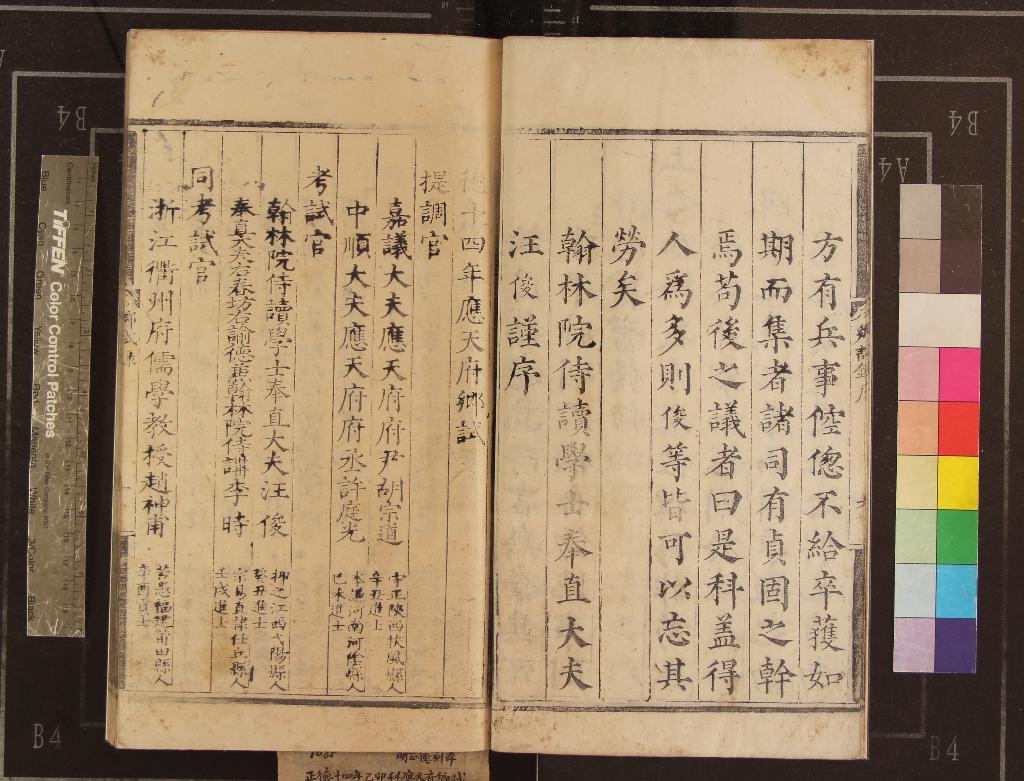 方有兵事倥偬不給卒獲如
期而集者諸司有貞固之幹
焉苟後之議者曰是科盖得
人爲多則俊等皆可以忘其
勞矣
翰林院侍讀學士奉直大夫
汪俊謹序
德十四年應天府鄉試
提調官
嘉議大夫應天府府尹胡宗道
陝西扶風縣人
辛丑進士
中順大夫應天府府丞許庭光
河南河陰縣人
己未進士
考試官
翰林院侍讀學士奉直大夫汪俊
抑之江西弋陽縣人
癸丑進士
奉直大夫右春坊右諭德兼翰林院侍講李時
宗易直隸任丘縣人
壬戌進士
同考試官
浙江衢州府儒學教授趙神甫
福建莆田縣人
辛酉貢士
TIFFEN Color Control Patches
Centimetres
Blue
Cyan
Green
Yellow
Red
Magenta
White
3/Color
Black
B4
B4
A4
B4
B4
正德十四年己卯科應天府鄉試